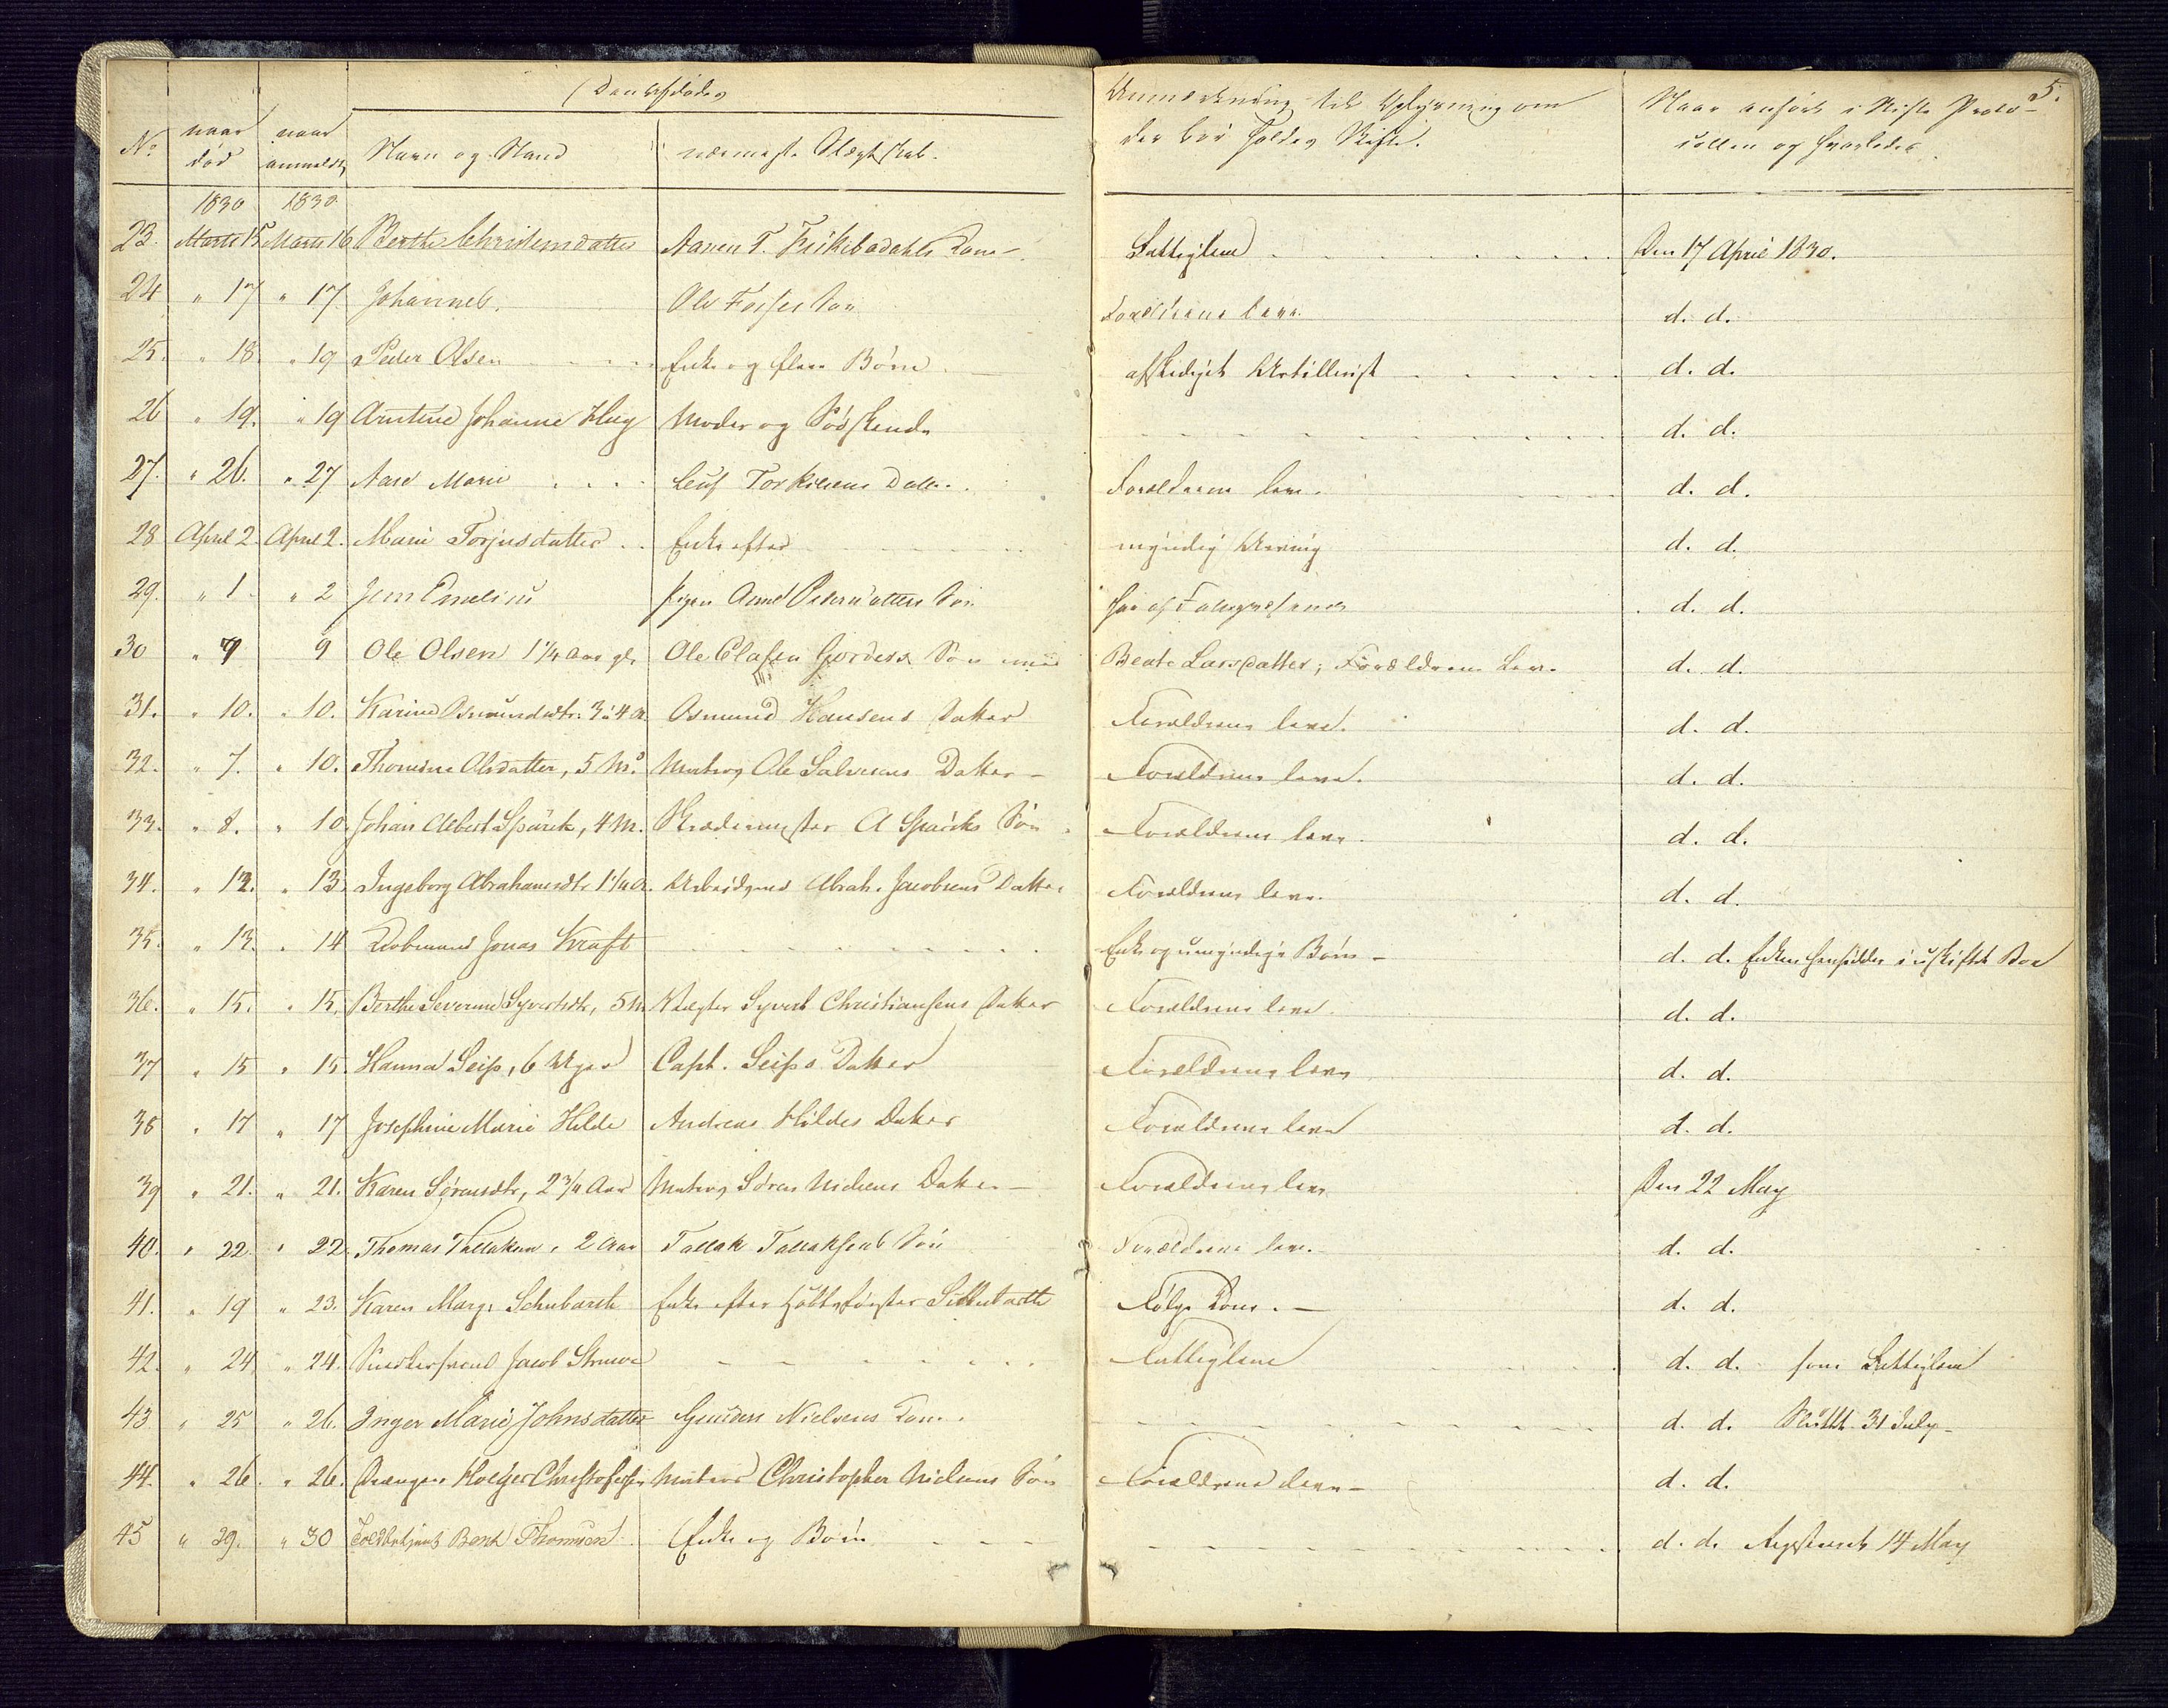 5.
Den Afdødes
No. naar død naar anmeldt Navn og Stand nærmeste Slægtskab. Anmærkning til Oplysning om der bør holdes Skifte. Naar anført i Skifte Protocollen og hvorledes
1830 1830
23. Marts 15 Marts 16 Berthe Christensdatter Aanen T. Kone Fattiglem Den 17 April 1830.
24 " 17 " 17. Johannes. Ole Fosses Søn Forældrene leve. d. d.
25. " 18. " 19 Peder Olsen Enke og flere Børn afskediget Artillerist d. d.
26 " 19. " 19 Johanne Moder og Søskende d. d.
27. " 26. " 27 Marie Torkilsens Datter. Forældrene leve. d. d.
28 April 2. April 2. Marie Torjusdatter Enke efter myndig Arving d. d.
29. " 1 " 2 Jens Emelius Pigen Pedersdatters Søn d. d.
30 " 9 9 Ole Olsen 1 1/4 Aar gl. Ole Olafsen Søn med Beate Larsdatter; Forældrene leve d. d.
31. " 10. " 10. Karine Osmundsdtr. 3/4 A. Osmund Hansens Datter Forældrene leve. d. d.
32. " 7. " 10. Thomine Olsdatter, 5 M. Matros Ole Salvesens Datter Forældrene leve. d. d.
33. " 8. " 10. Johan Albert Spärck, 4 M. Skrædermester A Spärcks Søn Forældrene leve. d. d.
34. " 12. " 13. Ingeborg Abrahamsdtr. 1 1/4 A. Arbeidsmd. Abrah. Jacobsens Datter Forældrene leve. d. d.
35. " 13. " 14 Jonas Kraft Enke og umyndige Børn d. d. Enken hensidder i uskiftet Boe
36. " 15. " 15. Berthe Severine Syvertsdtr, 5 M Slagter Syvert Christiansens Datter Forældrene leve d. d.
37 " 15 " 15. Hanna Seip, 6 Uger Capt. Seips Datter Forældrene leve d. d.
38 " 17 " 17 Josephine Marie Hilde Andreas Hildes Datter Forældrene leve d. d.
39 " 21. " 21. Karen Sørensdtr, 2 3/4 Aar Matros Søren Nielsens Datter Forældrene leve Den 22 May
40. " 22 " 22 Thomas Tallaksen, 2 Aar Tallak Tallaksens Søn Forældrene leve. d. d.
41. " 19 " 23. Karen Marg. Schubarth Enke efter Schubarth d. d.
42. " 24 " 24. Jacob Struwe Fattiglem d. d. som Fattiglem
43 " 25 " 26. Inger Marie Johnsdatter Gunders Nielsens Kone. d. d. Sluttet 31 July
44. " 26. " 26. Drengen Holger Christophersen Matros Christopher Nielsens Søn Forældrene leve d. d.
45 " 29. " 30 Toldbetjent Bent Thomsen Enke og Børn d. d. Registreret 14 May